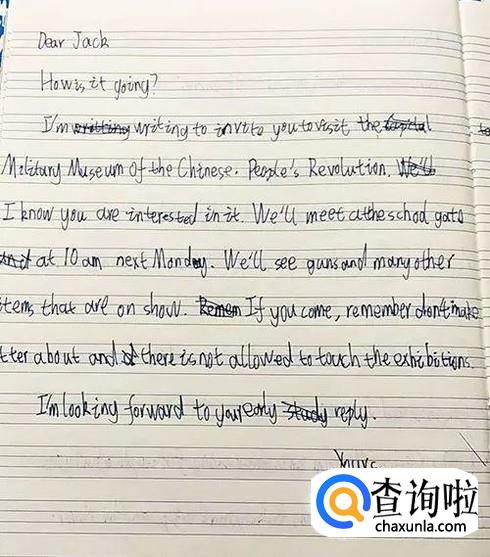 Dear Jack
How is it going?
I'm writing to invite you to visit the
Military Museum of the Chinese. People's Revolution.
I know you are interested in it. We'll meet at the school gate
at 10 am next Monday. We'll see guns and many other
items that are on show. If you come, remember don't make
tter about and there is not allowed to touch the exhibitions.
I'm looking forward to your early reply.
Yours
查询啦
chaxunla.com